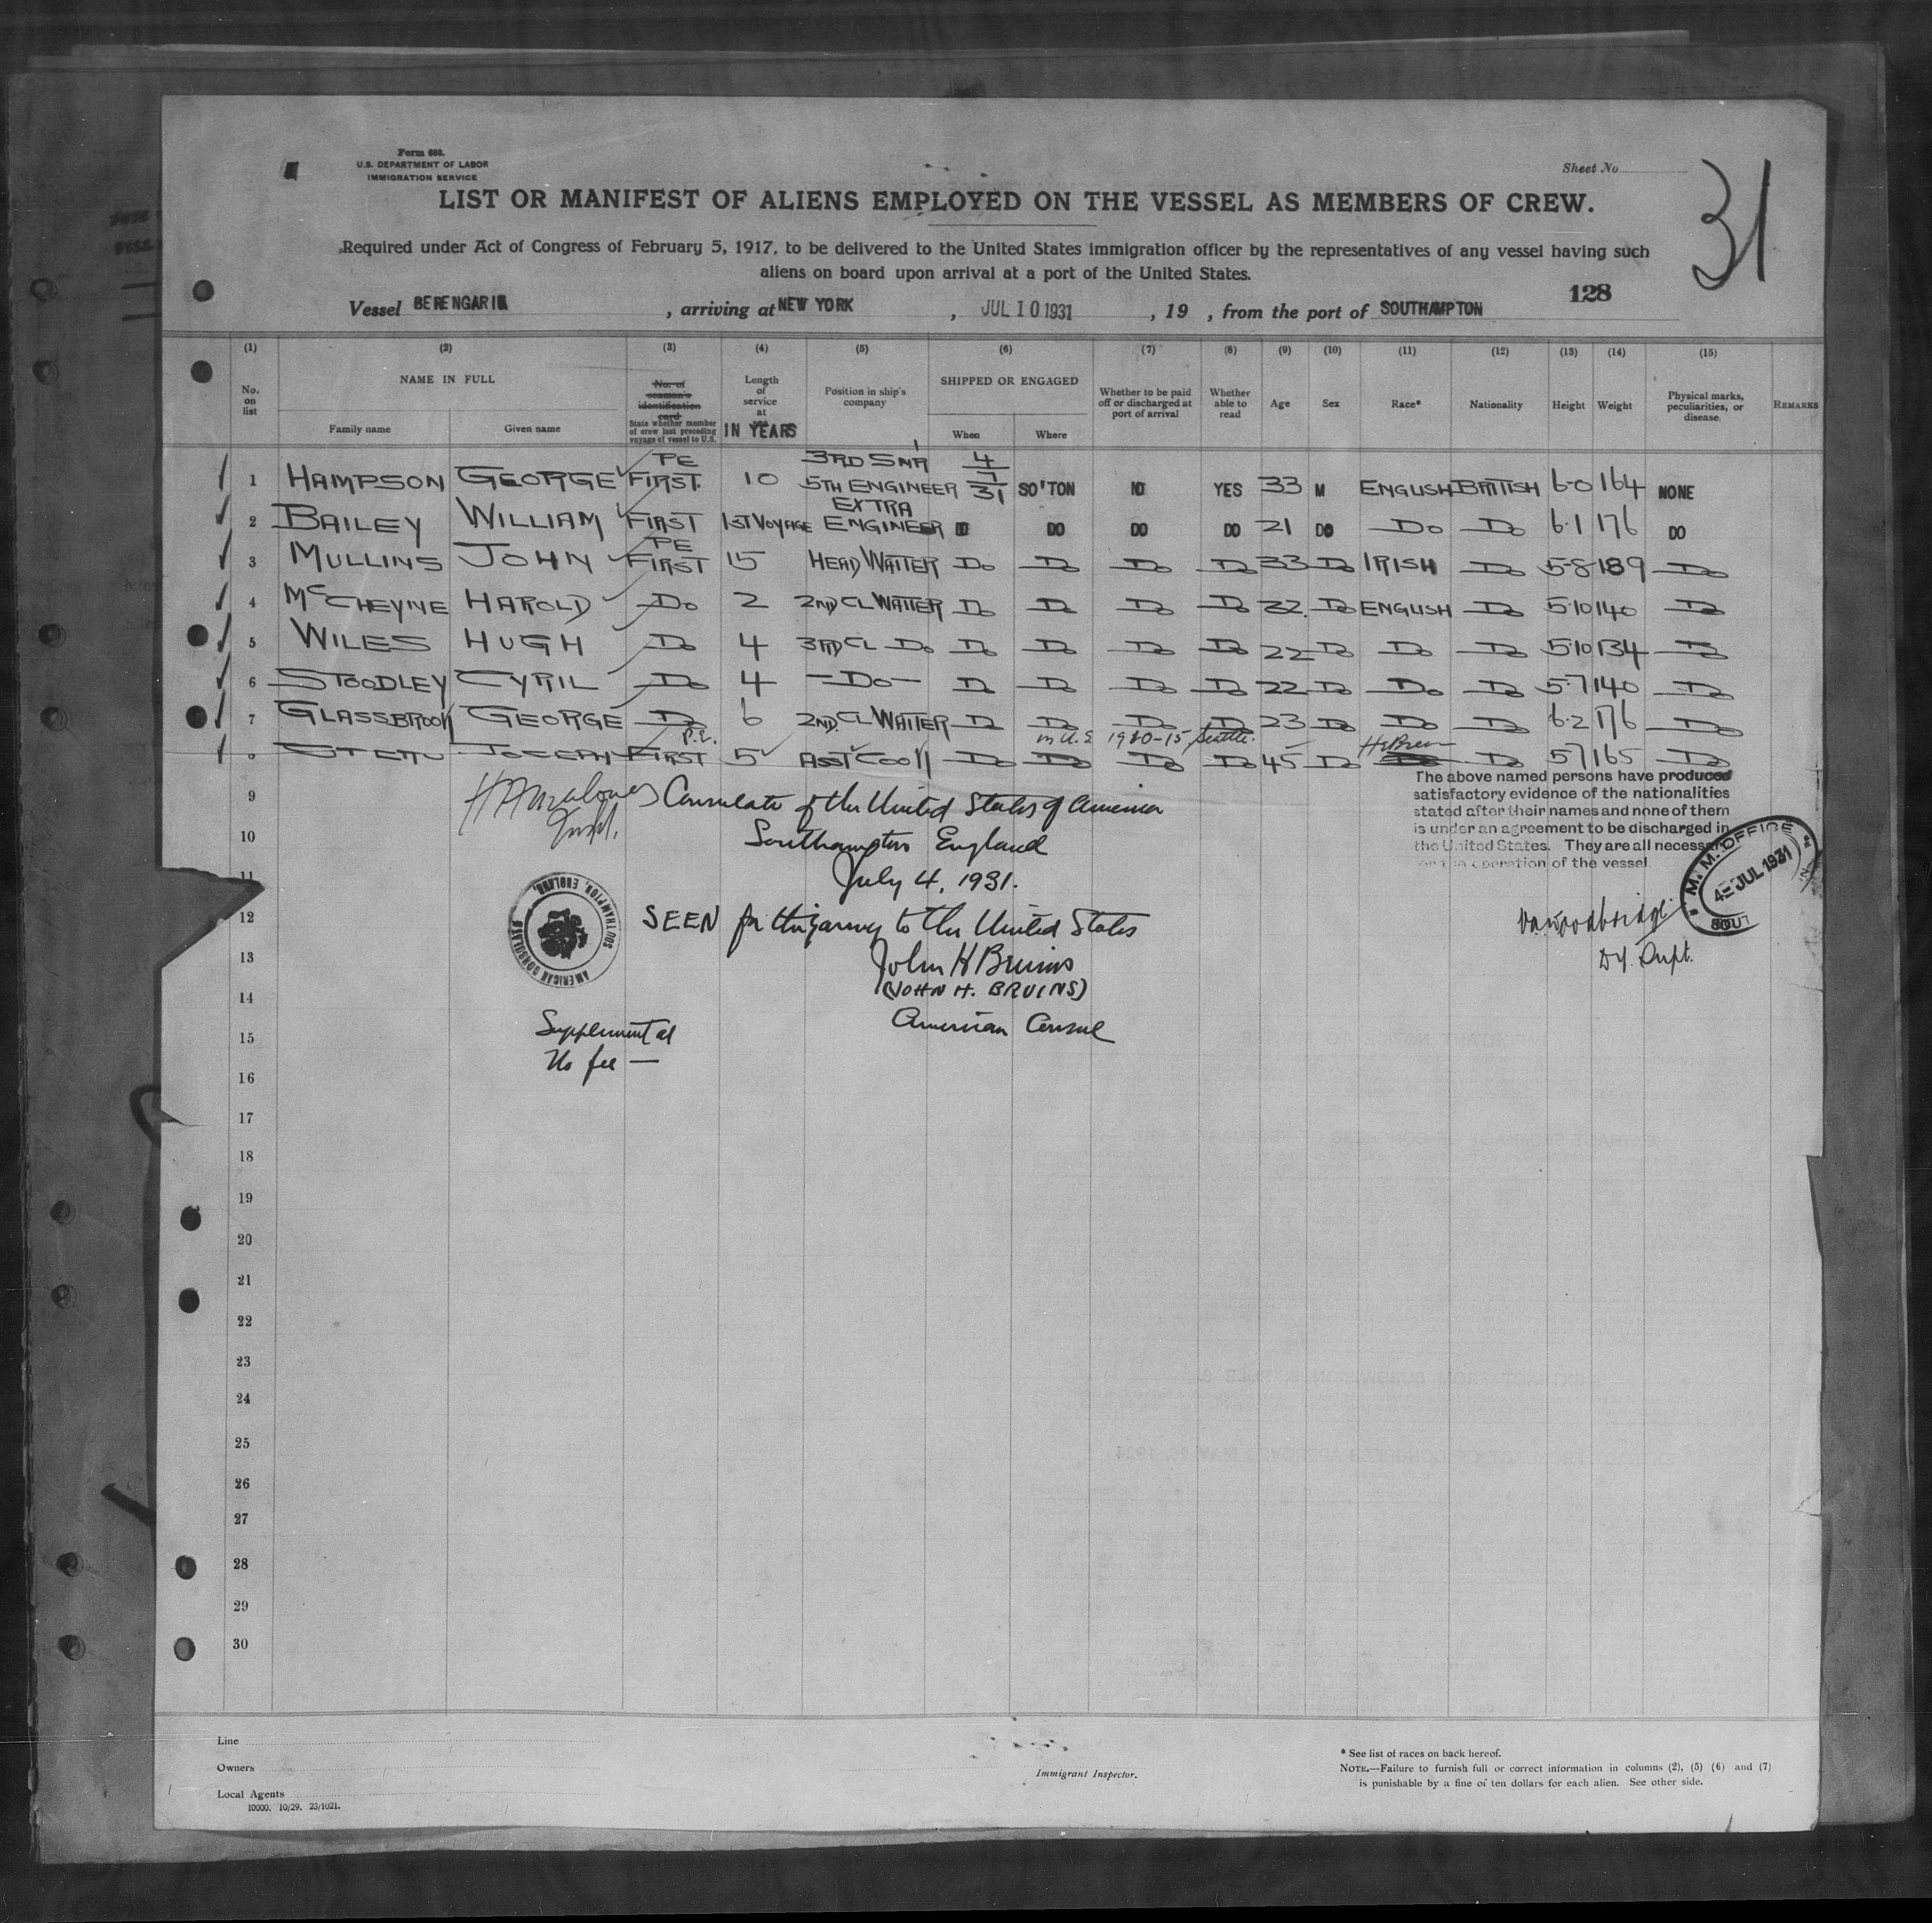 Form 680.
U.S. DEPARTMENT OF LABOR
IMMIGRATION SERVICE
Sheet No
31
LIST OR MANIFEST OF ALIENS EMPLOYED ON THE VESSEL AS MEMBERS OF CREW.
Required under Act of Congress of February 5, 1917, to be delivered to the United States immigration officer by the representatives of any vessel having such
aliens on board upon arrival at a port of the United States.
128
Vessel BERENGARIA , arriving at NEW YORK , JUL 10 1931 , 19 , from the port of SOUTHAMPTON
(1) (2) (3) (4) (5) (6) (7) (8) (9) (10) (11) (12) (13) (14) (15)
No. on list
NAME IN FULL
Family name Given name
No. of seaman's identification card
State whether member of crew last preceding voyage of vessel to U.S.
Length of service at sea
IN YEARS
Position in ship's company
SHIPPED OR ENGAGED
When Where
Whether to be paid off or discharged at port of arrival
Whether able to read
Age Sex Race* Nationality Height Weight
Physical marks, peculiarities, or disease.
REMARKS
1 HAMPSON GEORGE PE FIRST. 10 3RD SNR 5TH ENGINEER 4/7/31 SO'TON NO YES 33 M ENGLISH BRITISH 6-0 164 NONE
2 BAILEY WILLIAM FIRST 1ST VOYAGE EXTRA ENGINEER DO DO DO DO 21 DO DO DO 6·1 176 DO
3 MULLINS JOHN PE FIRST 15 HEAD WAITER DO DO DO DO 33 DO IRISH DO 5-8 189 DO
4 McCHEYNE HAROLD DO 2 2ND CL WAITER DO DO DO DO 22. DO ENGLISH DO 5·10 140 DO
5 WILES HUGH DO 4 3RD CL DO DO DO DO DO 22 DO DO DO 5·10 134 DO
6 STOODLEY CYRIL DO 4 -DO- DO DO DO DO 22 DO DO DO 5·7 140 DO
7 GLASSBROOK GEORGE DO 6 2ND. CL WAITER DO DO DO DO 23 DO DO DO 6·2 176 DO
P.E. in U.S 1910-15 Seattle. Hebrew
8 JOSEPH FIRST 5 ASST COOK DO DO DO DO 45 DO DO 5·7 165 DO
The above named persons have produced
satisfactory evidence of the nationalities
stated after their names and none of them
is under an agreement to be discharged in
the United States. They are all necessary
operation of the vessel.
9
Inspt.
Consulate of the United States of America
10 Southampton England
11 July 4, 1931.
M. M. OFFICE
4 - JUL 1931
SOUT
12 SEEN for the journey to the United States
AMERICAN CONSULATE
SOUTHAMPTON, ENGLAND.
13 John H Bruins
Dy. Supt.
14 (JOHN H. BRUINS)
American Consul
15 Supplemental
No fee —
16
17
18
19
20
21
22
23
24
25
26
27
28
29
30
Line
Owners
Local Agents
10000. 10/29. 23/1021.
Immigrant Inspector.
* See list of races on back hereof.
NOTE.—Failure to furnish full or correct information in columns (2), (5) (6) and (7)
is punishable by a fine of ten dollars for each alien. See other side.